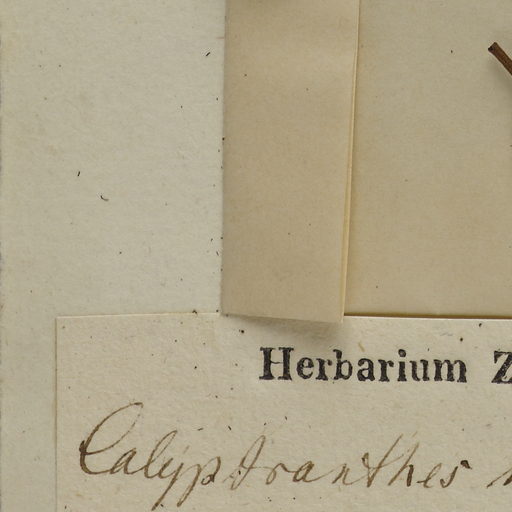 Herbarium Z
Calyptranthes